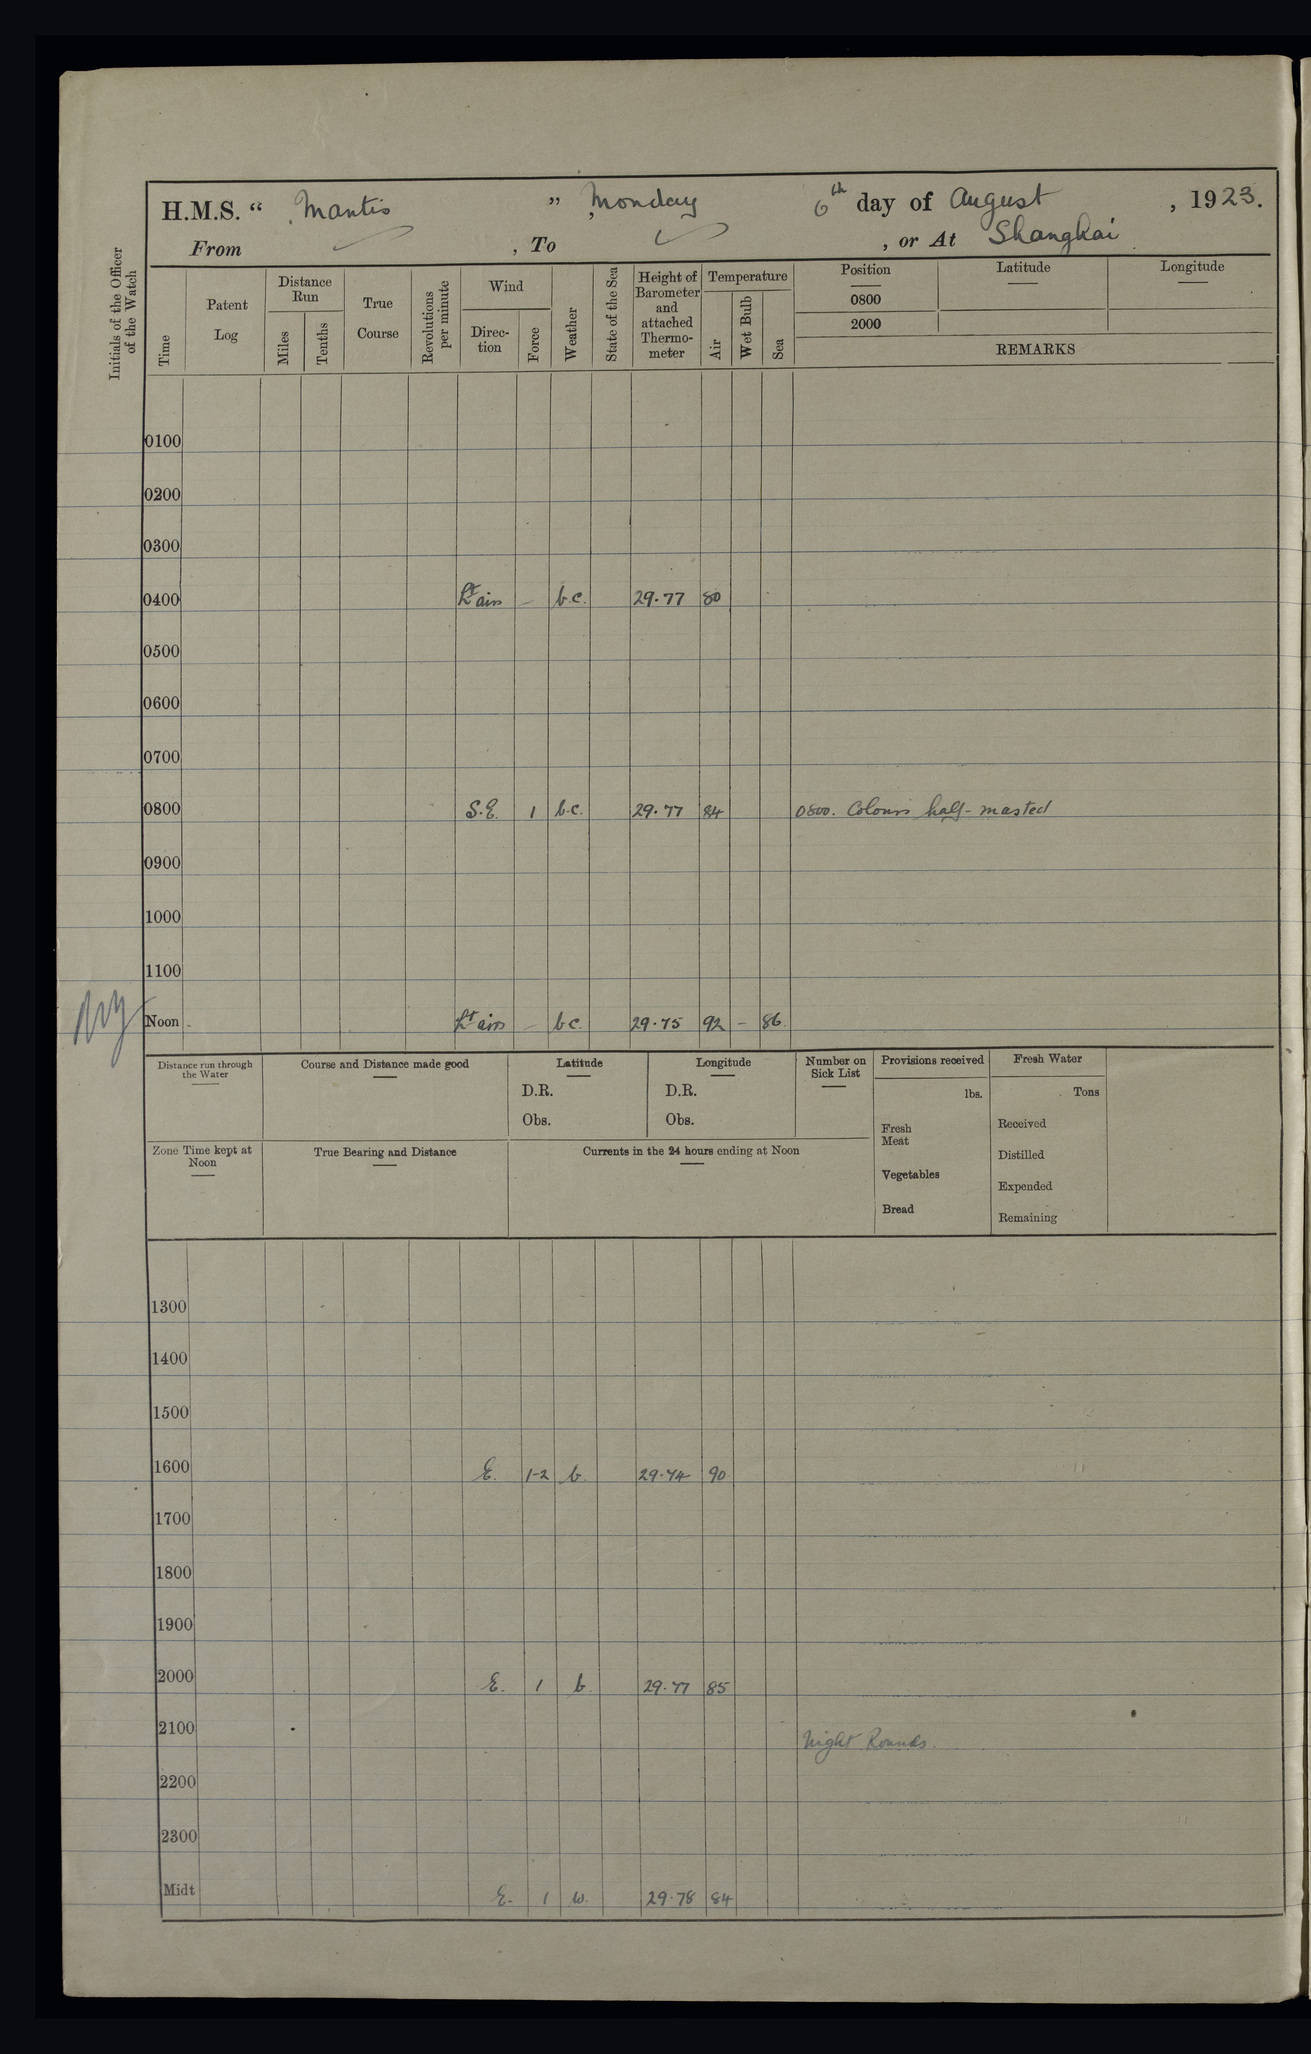 H.M.S. “ Mantis ” Monday 6th day of August , 1923.
From , To , or At Shanghai
Initials of the Officer of the Watch
Time
Patent Log
Distance Run
Miles
Tenths
True Course
Revolutions per minute
Wind
Direc-tion
Force
Weather
State of the Sea
Height of Barometer and attached Thermo-meter
Temperature
Air
Wet Bulb
Sea
Position Latitude Longitude
0800
2000
REMARKS
0100
0200
0300
0400 Lt airs – b.c. 29.77 80
0500
0600
0700
0800 S.E. 1 b.c. 29.77 84 0800. Colours half-masted
0900
1000
1100
Noon Lt airs – bc. 29.75 92 – 86
Distance run through the Water
Course and Distance made good
Latitude
D.R.
Obs.
Longitude
D.R.
Obs.
Number on Sick List
Provisions received
lbs.
Fresh Meat
Vegetables
Bread
Fresh Water
Tons
Received
Distilled
Expended
Remaining
Zone Time kept at Noon
True Bearing and Distance
Currents in the 24 hours ending at Noon
1300
1400
1500
1600 E. 1-2 b. 29.74 90
1700
1800
1900
2000 E. 1 b. 29.77 85
2100 Night Rounds.
2200
2300
Midt E. 1 w. 29.78 84